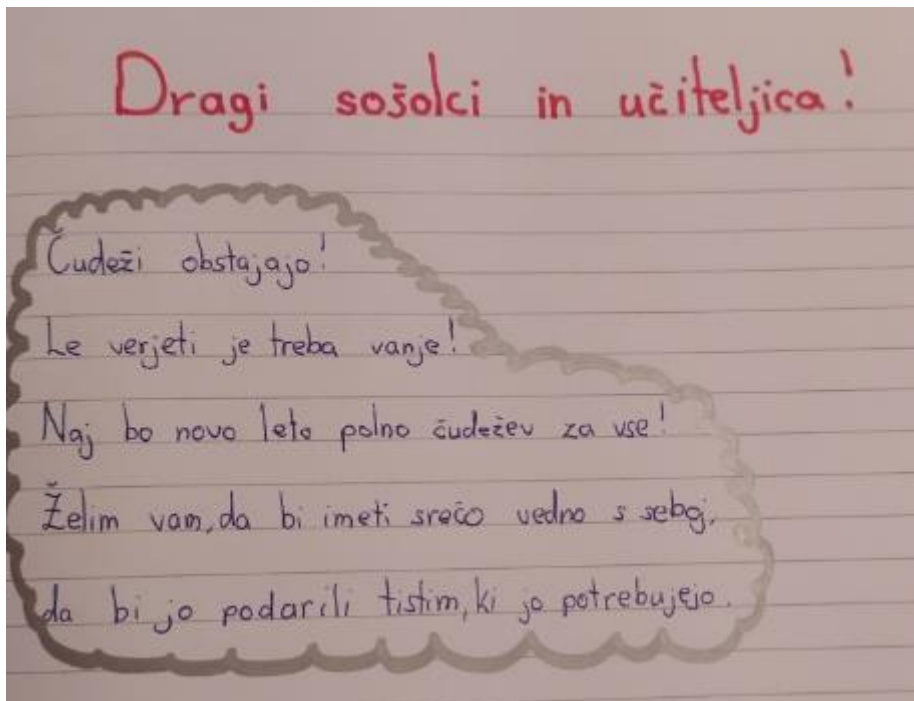 Dragi sošolci in učiteljica!
Čudeži obstajajo!
Le verjeti je treba vanje!
Naj bo novo leto polno čudežev za vse!
Želim vam, da bi imeti srečo vedno s seboj,
da bi jo podarili tistim, ki jo potrebujejo.